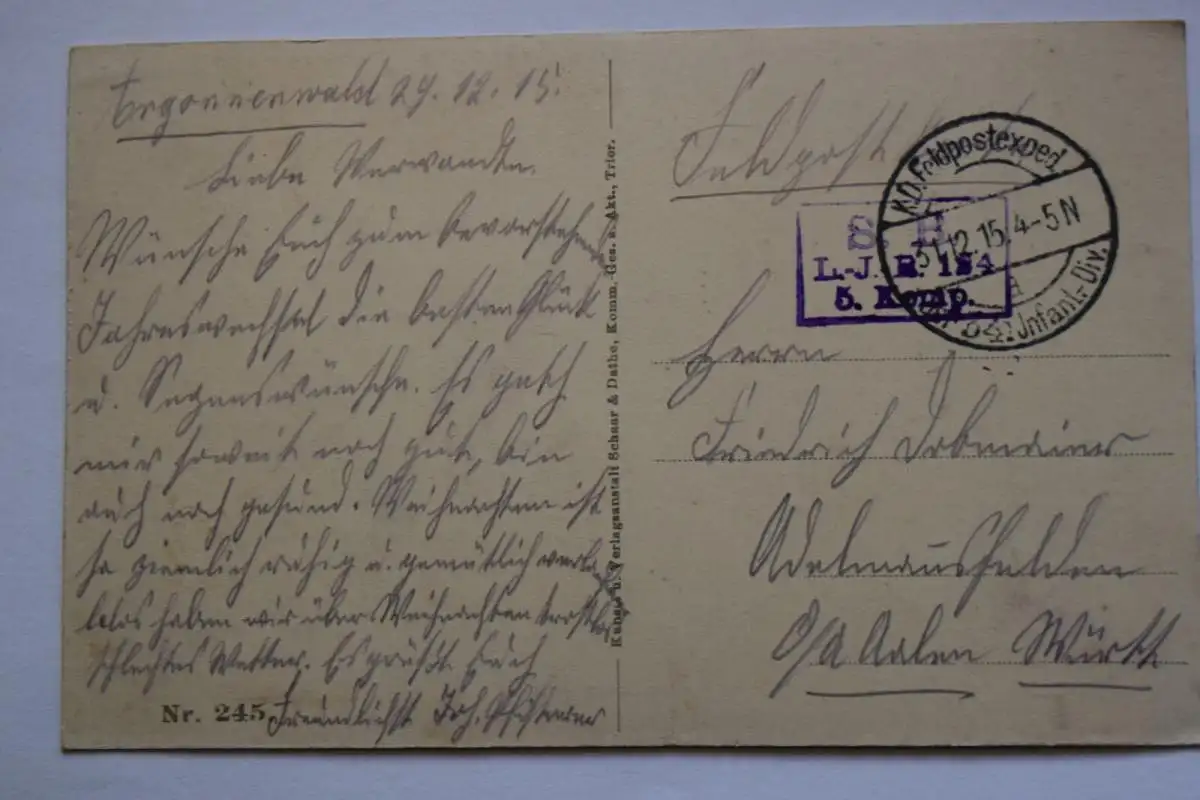 Argonnenwald 29.12.15.
Liebe Verwandten.
Wünsche Euch zum bevorstehend.
Jahreswechsel die besten Glück
u. Segenswünsche. Es geht
mir soweit noch gut, bin
auch noch gesund. Weihnachten ist
so ziemlich ruhig u. gemütlich
haben wir über Weihnachten
schlechtes Wetter. Es grüßt Euch
Freundlichst Joh.
Nr. 245
Kunst- u. Verlagsanstalt Schaar & Dathe, Komm.-Ges. a. Akt., Trier.
Feldpost
K.D. Feldpostexped.
31.12.15. 4-5 N
a
54. Infant.-Div.
S. B.
L.-J. R. 124
5. Komp.
Herrn
Friedrich
Adelmannsfelden
O/A Aalen Württ